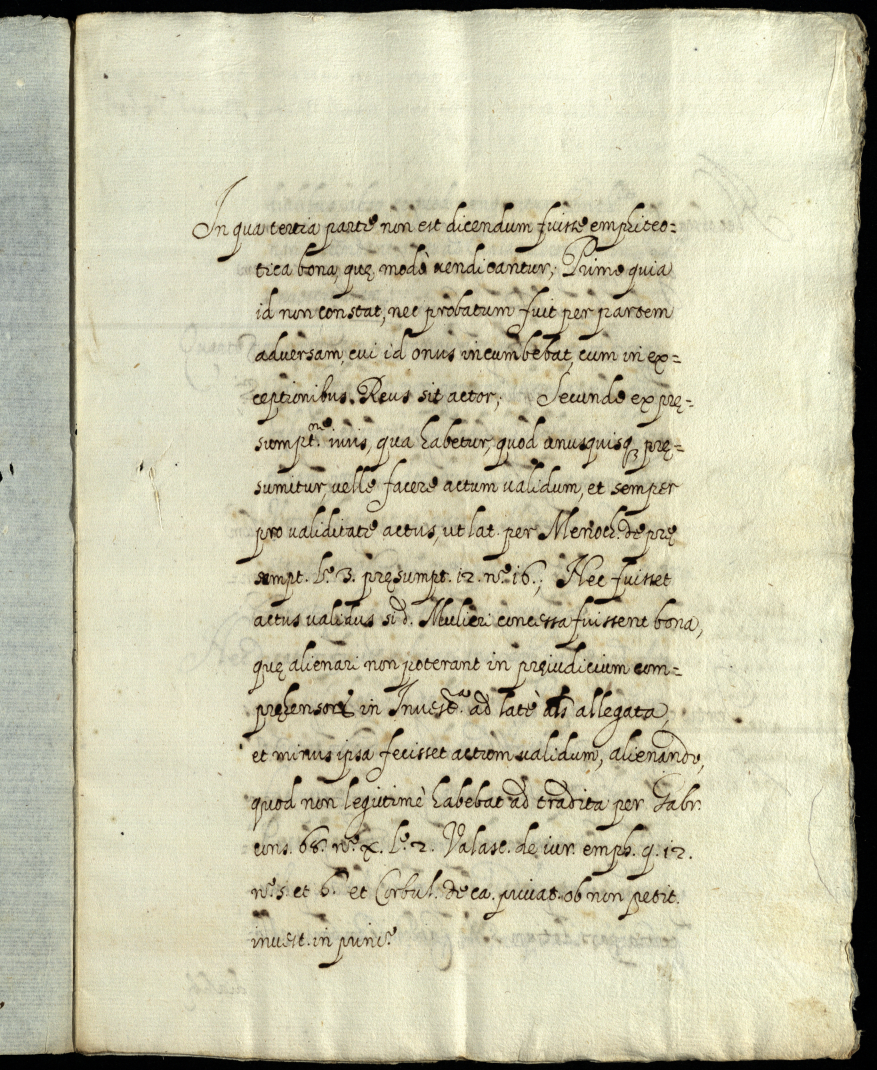 In qua tertia parte non est dicendum fuisse emphiteo=
tica bona, quę modò vendicantur; Primo quia
id non constat, nec probatum fuit per partem
adversam, cui id onus incumbebat, cum in ex=
ceptionibus. Reus sit actor; Secundo ex prę=
sumpt.ne iuris, qua habetur, quòd unusquisq3 prę=
sumitur, velle facere actum validum, et semper
pro validitate actus, ut lat. per Menoch. de prę
sumpt. l.o 3. pręsumpt. 12. n.o 16.; Nec fuisset
actus validus si d. Mulieri concessa fuissent bona,
quę alienari non poterant in pręiudicium com=
prehensor in Invest.a ad latè als allegata,
et minus ipsa fecisset actum validum, alienando,
quod non legitimè habebat ad tradita per Gabr.
cons. 68. n.o x. l.o 2. Valasc. de iur. emph. q. 12.
n.o 5. et 6. et Corbul. de ca. privat. ob non petit.
invest. in princ.o